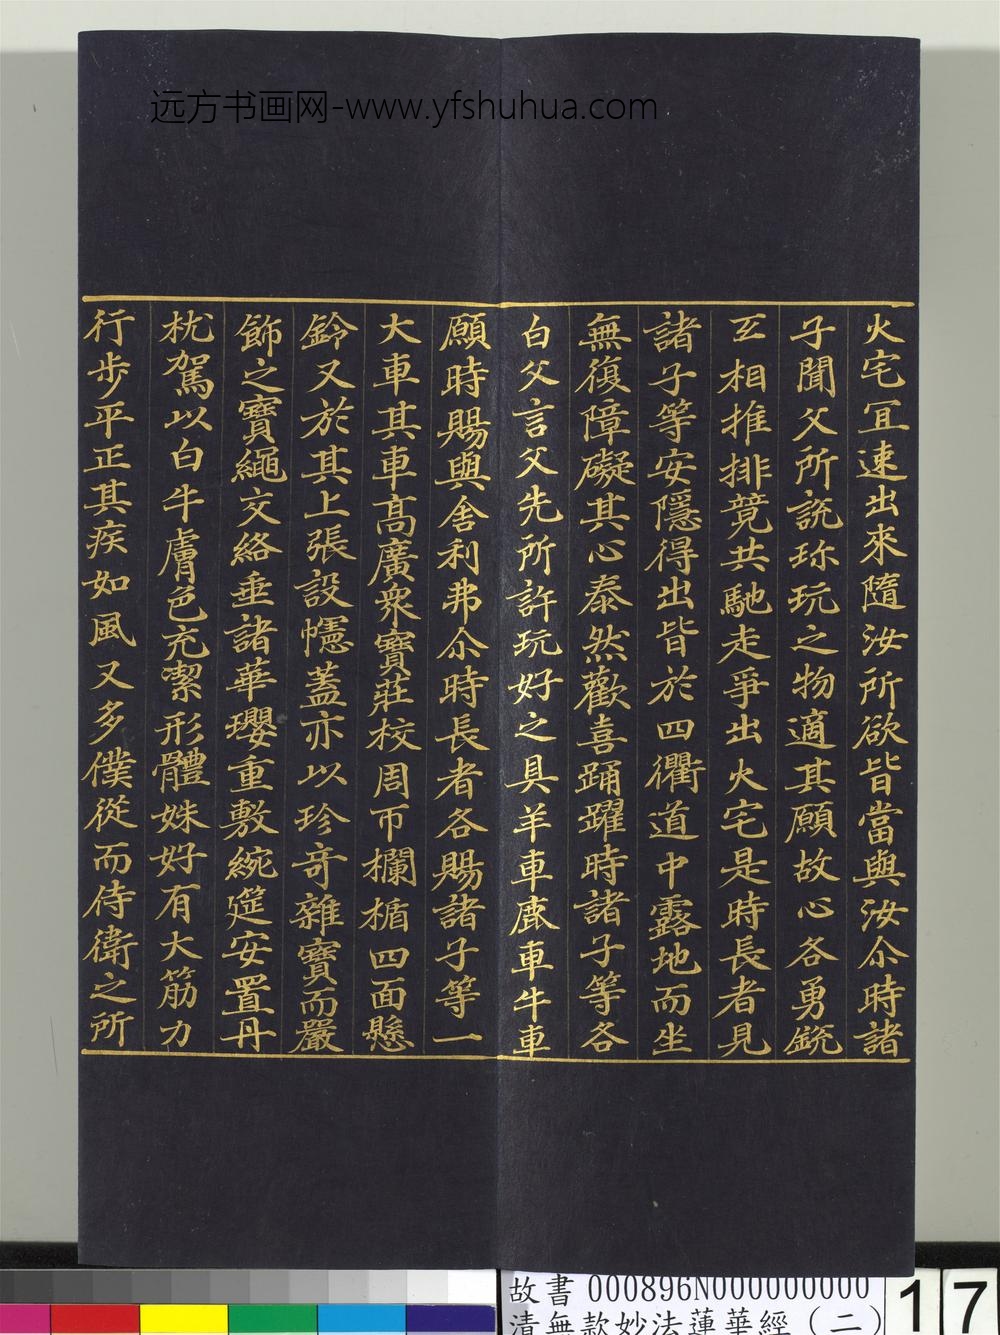 远方书画网-www.yfshuhua.com
火宅冝速出來隨汝所欲皆當與汝尒時諸
子聞父所說珎玩之物適其願故心各勇銳
互相推排競共馳走爭出火宅是時長者見
諸子等安隱得出皆於四衢道中露地而坐
無復障礙其心泰然歡喜踊躍時諸子等各
白父言父先所許玩好之具羊車鹿車牛車
願時賜與舍利弗尒時長者各賜諸子等一
大車其車高廣衆寶莊校周帀欄楯四面懸
鈴又於其上張設幰蓋亦以珍奇雜寶而嚴
飾之寶繩交絡垂諸華瓔重敷綩筵安置丹
枕駕以白牛膚色充潔形體姝好有大筋力
行步平正其疾如風又多僕從而侍衛之所
故書 000896N000000000
清無款妙法蓮華經（二）
17